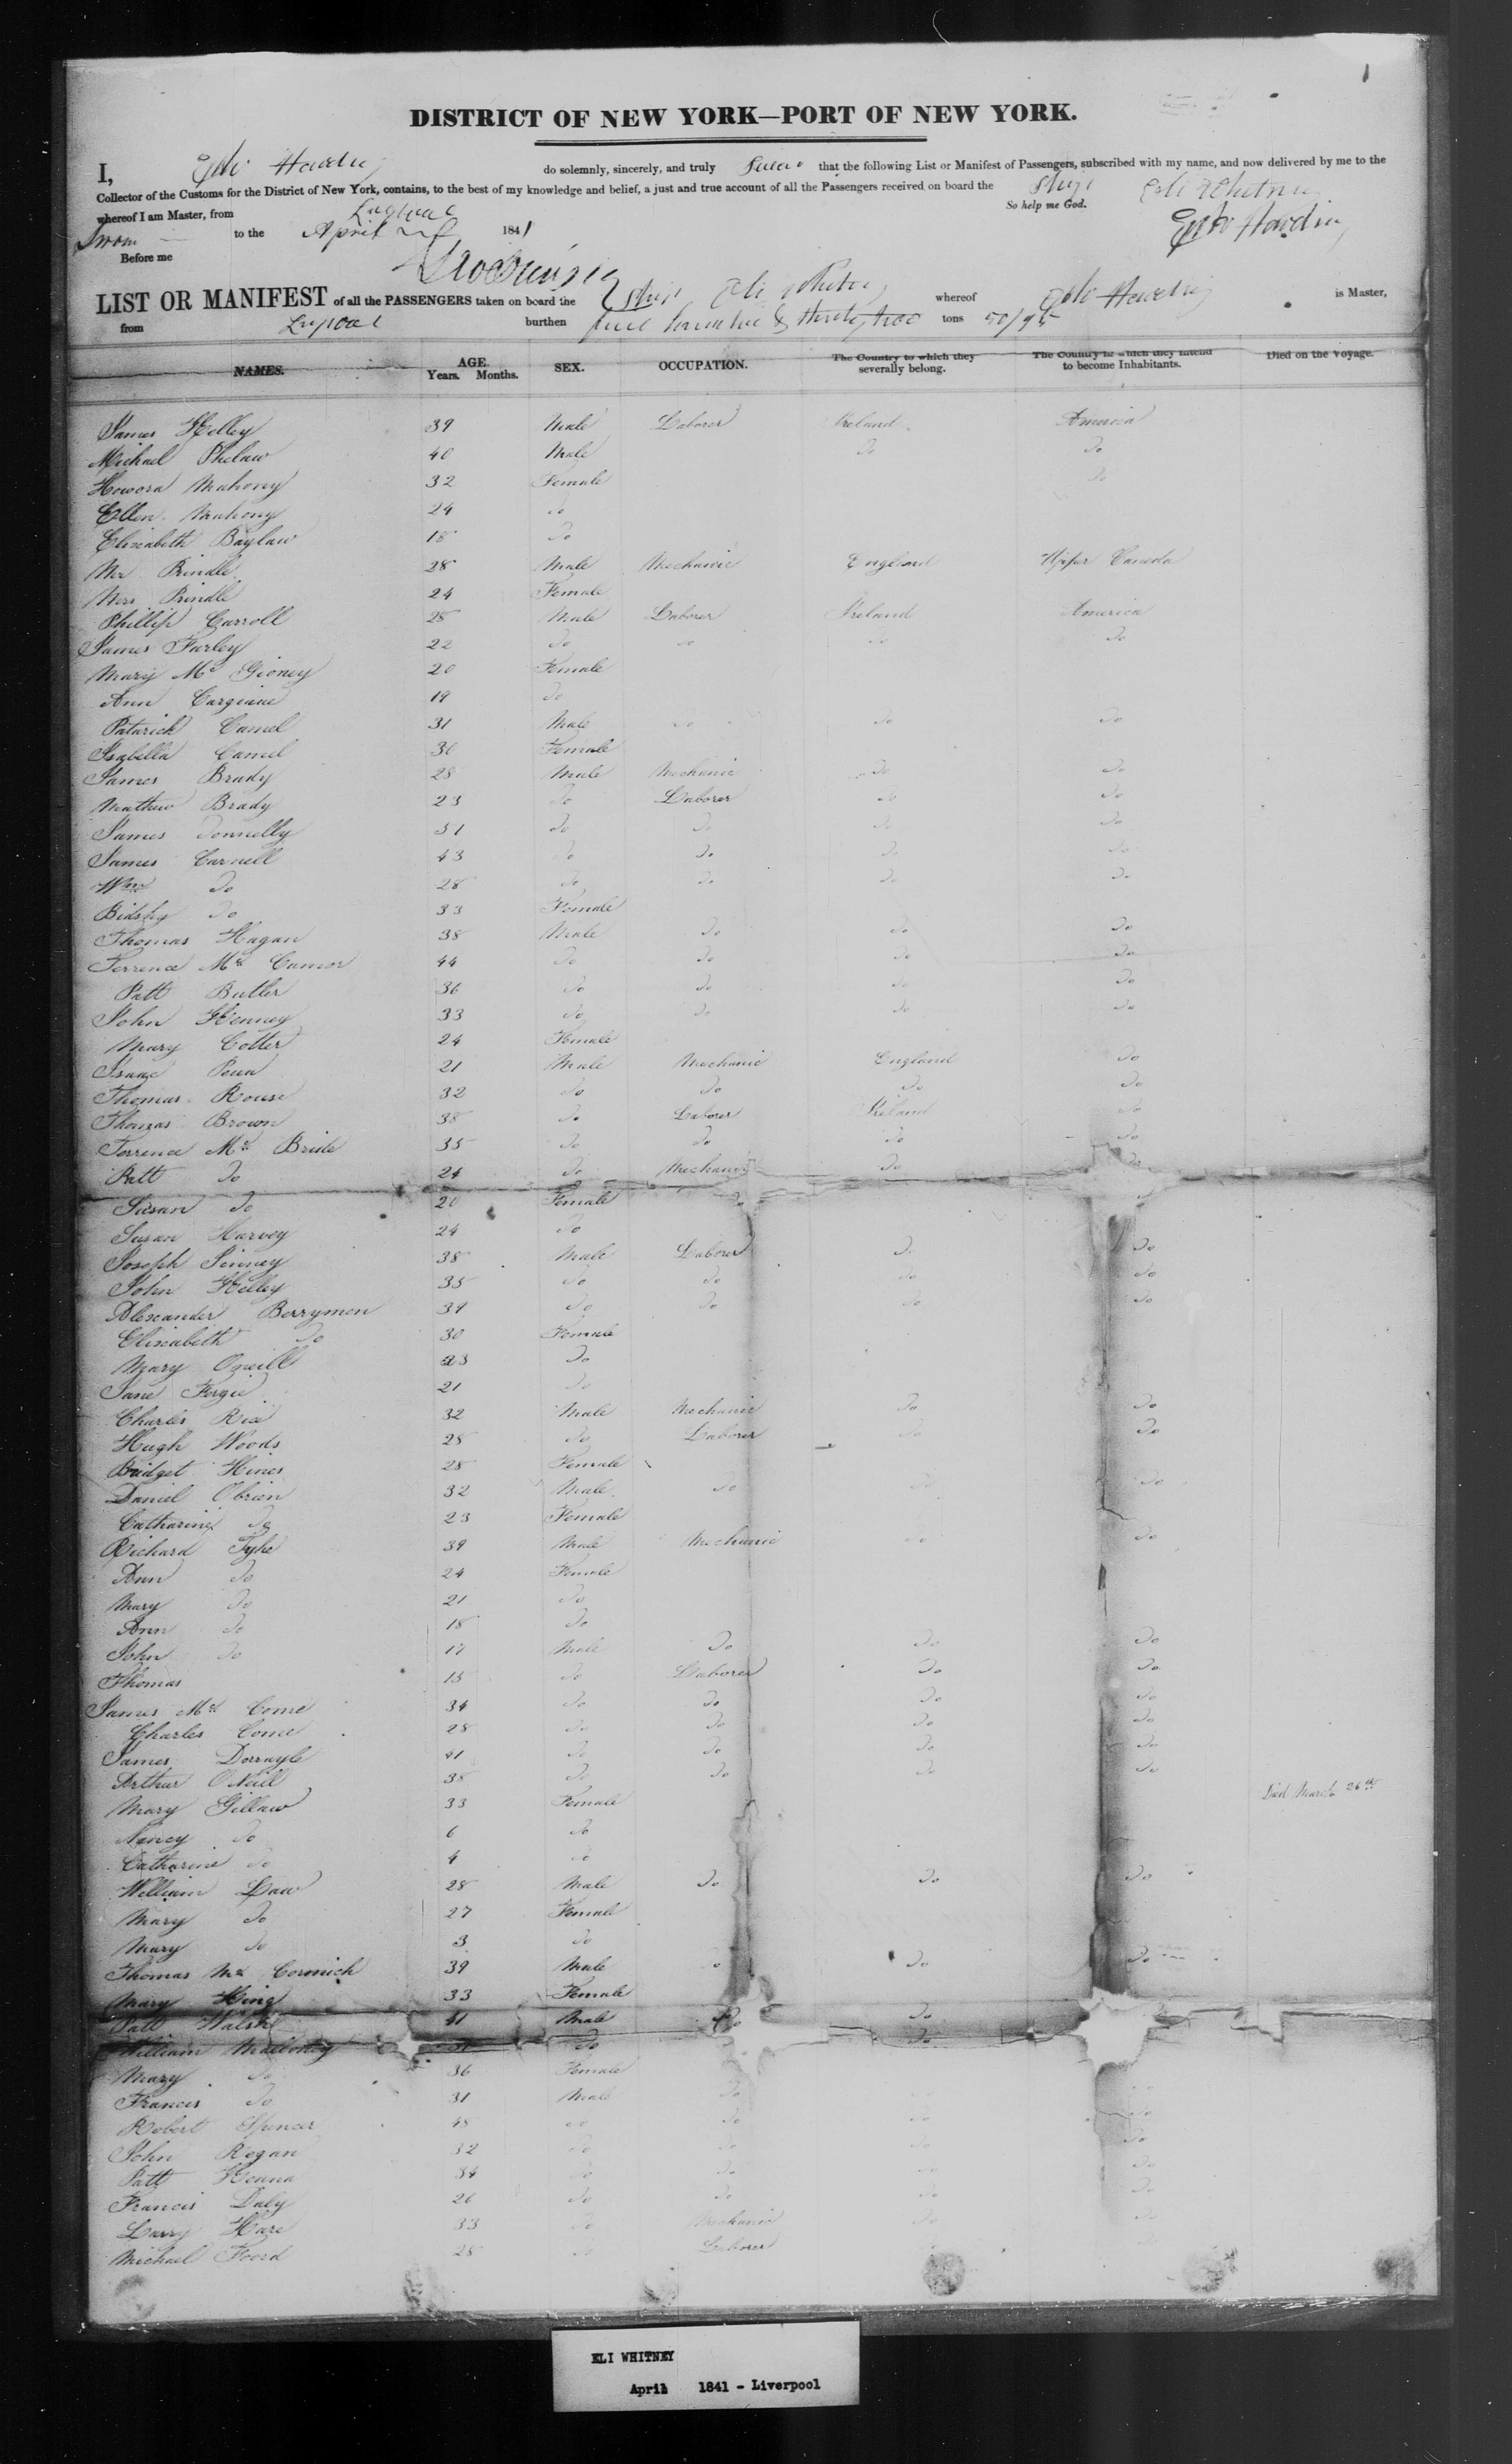 1
DISTRICT OF NEW YORK—PORT OF NEW YORK.
I, Harding do solemnly, sincerely, and truly Swear that the following List or Manifest of Passengers, subscribed with my name, and now delivered by me to the
Collector of the Customs for the District of New York, contains, to the best of my knowledge and belief, a just and true account of all the Passengers received on board the Ship Eli Whitney
whereof I am Master, from Liverpool So help me God.
Sworn to the April 1841 Harding
Before me
LIST OR MANIFEST of all the PASSENGERS taken on board the Ship Eli Whitney whereof Harding is Master,
from Liverpool burthen five hundred & thirty two tons /95
NAMES. AGE. Years. Months. SEX. OCCUPATION. The Country to which they severally belong. The Country in which they intend to become Inhabitants. Died on the Voyage.
James Kelley 39 Male Laborer Ireland America
Michael Phelaw 40 Male Do Do
Howora Mahony 32 Female Do
Ellen Mahony 24 Do
Elizabeth Baylaw 18 Do
Mr Prindle 28 Male Mechanic England Upper Caneda
Mrs Prindle 24 Female
Phillip Carroll 28 Male Laborer Ireland America
James Farley 22 Do Do Do Do
Mary Mc Gioney 20 Female
Ann Cargiane 19 Do
Patarick Camel 31 Male Do Do Do
Isabella Camel 30 Female
James Brady 28 Male Mechanic Do Do
Mathew Brady 23 Do Laborer Do Do
James Donnelly 31 Do Do Do Do
James Carnell 43 Do Do Do Do
Wm Do 28 Do Do Do Do
Bidshy Do 33 Female
Thomas Hagan 38 Male Do Do Do
Terrence Mc Camor 44 Do Do Do Do
Patt Butler 36 Do Do Do Do
John Kenney 33 Do Do Do Do
Mary Cotter 24 Female
Isaac Penn 21 Male Mechanic England Do
Thomas Rouse 32 Do Do Do Do
Thomas Brown 38 Do Laborer Ireland Do
Terrence Mc Bride 35 Do Do Do Do
Patt Do 24 Do Mechanic Do Do
Susan Do 20 Female Do
Susan Harvey 24 Do
Joseph Sinney 38 Male Laborer Do Do
John Kelley 35 Do Do Do Do
Alexander Berrymen 34 Do Do Do Do
Elizabeth Do 30 Female
Mary Oneill 23 Do
Jane Fergu 21 Do
Charles Rice 32 Male Mechanic Do Do
Hugh Woods 28 Do Laborer Do Do
Bridget Hines 28 Female
Daniel Obrien 32 Male Do Do Do
Catharine Do 23 Female
Richard Tyhe 39 Male Mechanic Do Do
Ann Do 24 Female
Mary Do 21 Do
Ann Do 18 Do
John Do 17 Male Do Do Do
Thomas 15 Do Laborer Do Do
James Mc Come 34 Do Do Do Do
Charles Come 28 Do Do Do Do
James Dorrayle 41 Do Do Do Do
Arthur O Neill 38 Do Do Do Do
Mary Gillaw 33 Female Died March 26th
Nancy Do 6 Do
Catharine Do 4 Do
William Law 28 Male Do Do Do
Mary Do 27 Female
Mary Do 3 Do
Thomas Mc Cormick 39 Male Do Do Do
Mary King 33 Female
Patt Walsh 41 Male Do Do
William Malloney Do Do
Mary Do 36 Female
Francis Do 31 Male Do
Robert Spencer 45 Do Do Do Do
John Regan 32 Do Do Do Do
Patt Kenna 34 Do Do Do
Francis Daly 26 Do Do Do Do
Larry Hare 33 Do Mechanic Do Do
Michael Foord 28 Do Laborer
ELI WHITNEY
April 1841 - Liverpool